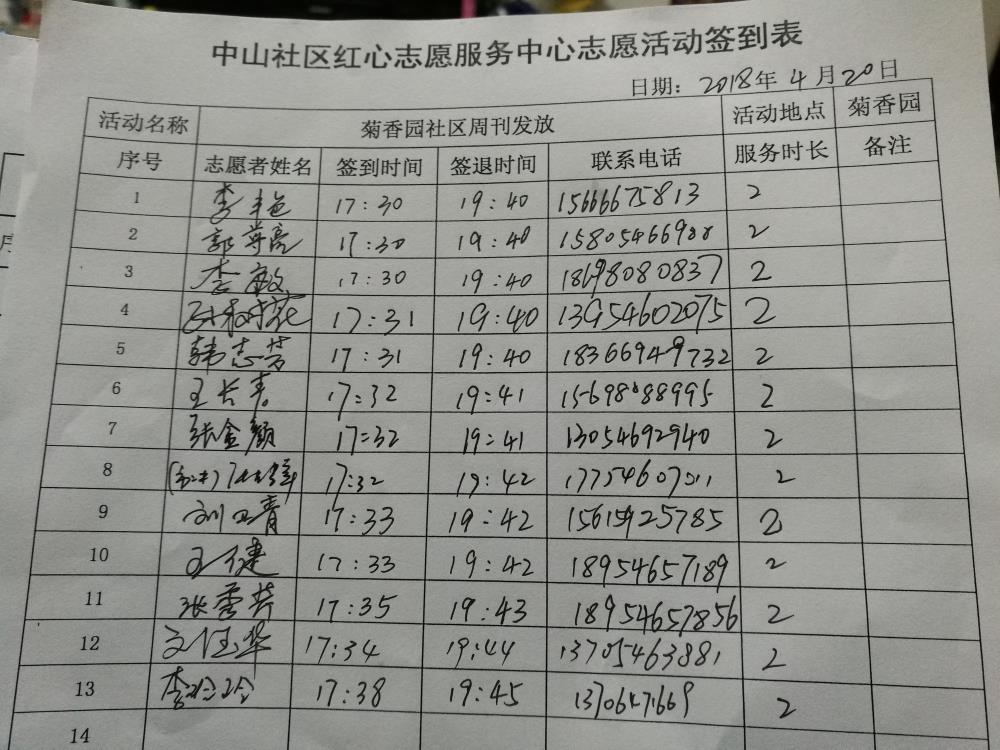 中山社区红心志愿服务中心志愿活动签到表
日期: 2018年 4 月 20 日
活动名称 菊香园社区周刊发放 活动地点 菊香园
序号 志愿者姓名 签到时间 签退时间 联系电话 服务时长 备注
1 李艳 17:30 19:40 15666675813 2
2 郭尊亮 17:30 19:40 2
3 李敏 17:30 19:40 18698080837 2
4 17:31 19:40 13954602075 2
5 韩志芳 17:31 19:40 18366949732 2
6 王长春 17:32 19:41 15698888995 2
7 张金颜 17:32 19:41 13054692940 2
8 17:32 19:42 2
9 刘卫青 17:33 19:42 15615925785 2
10 王健 17:33 19:42 18954657189 2
11 张秀芳 17:35 19:43 18954657856 2
12 17:34 19:44 13705463881 2
13 李玲玲 17:38 19:45 2
14